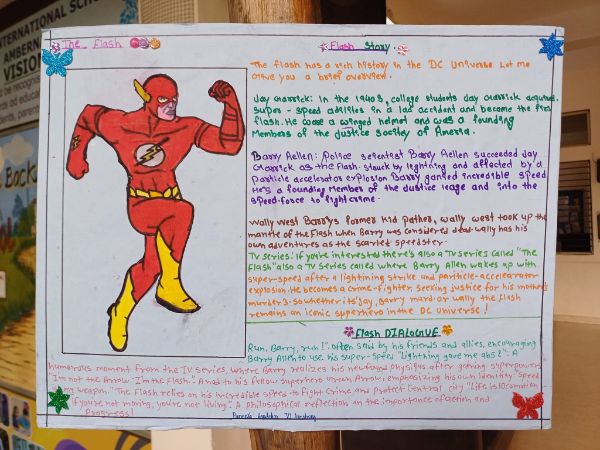 INTERNATIONAL SCHOOL
AMBERNA
VISION
Back
The Flash
Flash Story.
The flash has a rich history in the DC Universe Let me
Give you a brief overview.
Jay Garrick: In the 1940s, college students day Garrick acquired
super-speed abilities in a lab accident and become the first
flash. He wore a winged helmet and was a founding
Members of the Justice Society of America.
Barry Aellen: Police scientest Barry Aellen succeeded jay
Garrick as the Flash. stuck by lightning and affected by a
Particle accelerator explosion Barry gained incredible speed
He's a founding Member of the Justice leage and into the
speed-force to fight crime.
Wally West Barrys former kid father, wally west took up the
mantle of the Flash when Barry was considered dead wally has his
own adventures as the scarlet speedster.
TV series: If you're interested there's also a TV series called "The
Flash" also a TV series called where Barry Allen wakes up with
super-speed after a lightining strike and particle-accelearator
explosion. He becomes a crime-fighter, seeking justice for his mother's
murder3. so whether its' jay, Barry mard or wally the flash
remains an iconic superhero in the DC universe!
Flash DIALOGUE
Run, Barry, run!". Often said by his friends and allies, encouraging
Barry Allen to use his super-speed "Lightning gave me abs?": A
humorous moment from the TV series, where Barry realizes his newfound physique after gaining superpowers
"I'm not the Arrow. I'm the Flash". A nod to his fellow superhero Arrow, emphasizing his own identity "Speed
my weapon". The Flash relies on his incredible speed to fight crime and protect Central city "Life is locomotion
if you're not moving, you're not living". A philosophical reflection on the importance of action and
Progress!